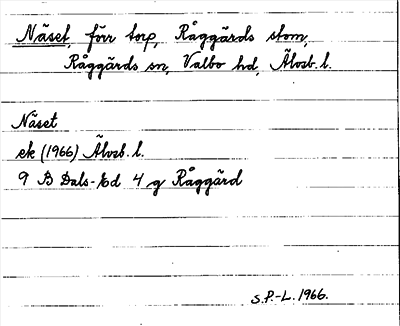 Näset, förr torp, Råggärds stom,
Råggärds sn, Valbo hd, Älvsb. l.
Näset
ek (1966) Älvsb. l.
9 B Dals-Ed 4 g Råggärd
S.P.-L. 1966.